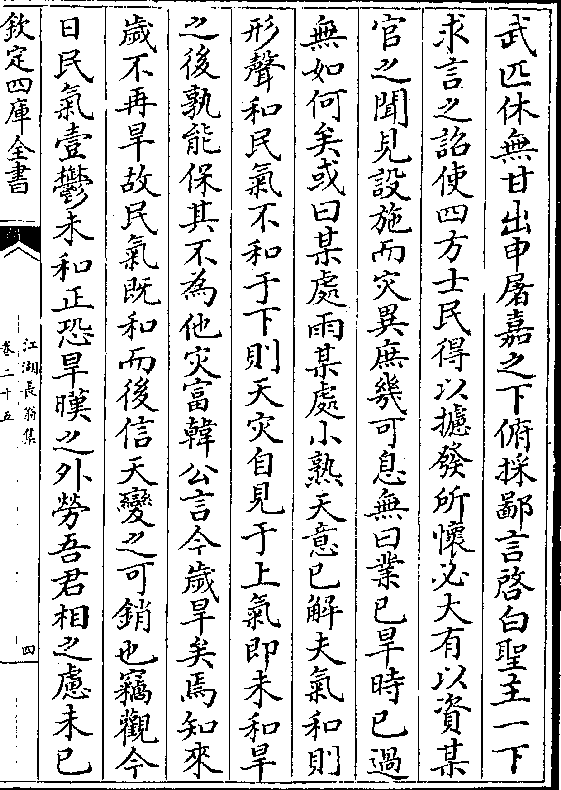 武匹休無甘出申屠嘉之下俯採鄙言啓白聖主一下
求言之詔使四方士民得以攄發所懷必大有以資某
官之聞見設施而灾異庶幾可息無曰業已旱時已過
無如何矣或曰某處雨某處小熟天意已解夫氣和則
形聲和民氣不和于下則天灾自見于上氣即未和旱
之後孰能保其不為他灾富韓公言今歲旱矣焉知來
歲不再旱故民氣既和而後信天變之可銷也竊觀今
日民氣壹鬱未和正恐旱暵之外勞吾君相之慮未已
欽定四庫全書
江湖長翁集
卷二十五
四